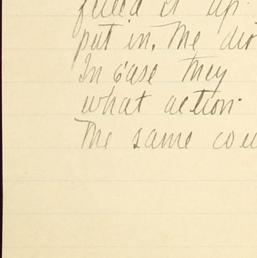 filled it up
put in. The dir
In case they
what action
The same cou